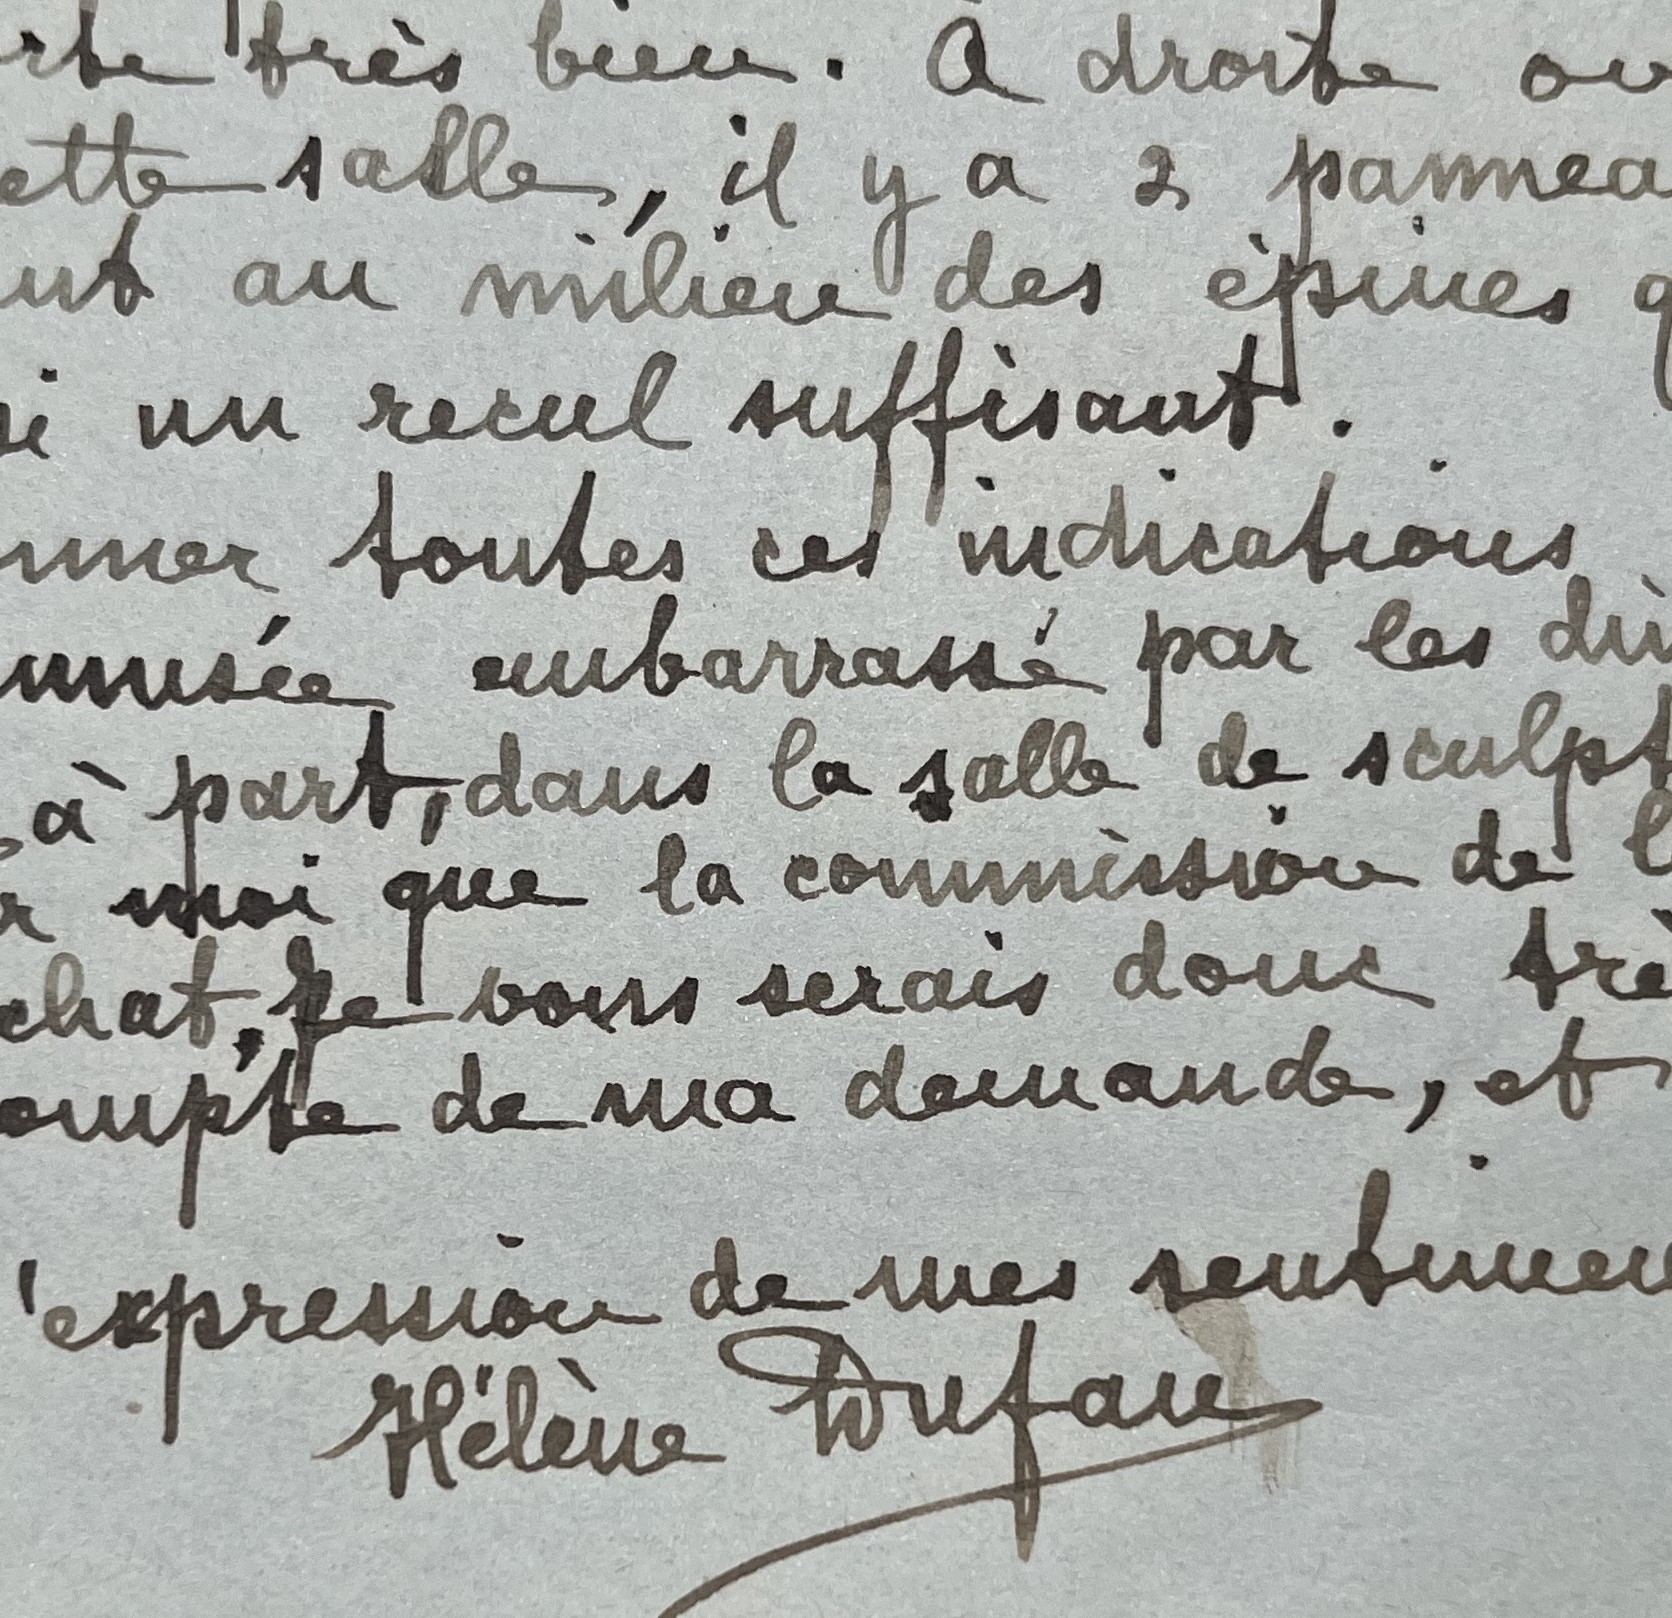 rte très bien. A droite ou
ette salle, il y a 2 pannea
ut au milieu des épines q
si un recul suffisant.
nner toutes ces indications
musée embarrassé par les di
à part, dans la salle de sculpt
r moi que la commission de l
chat. Je vous serais donc trè
ompte de ma demande, et
'expression de mes sentimen
Hélène Dufau